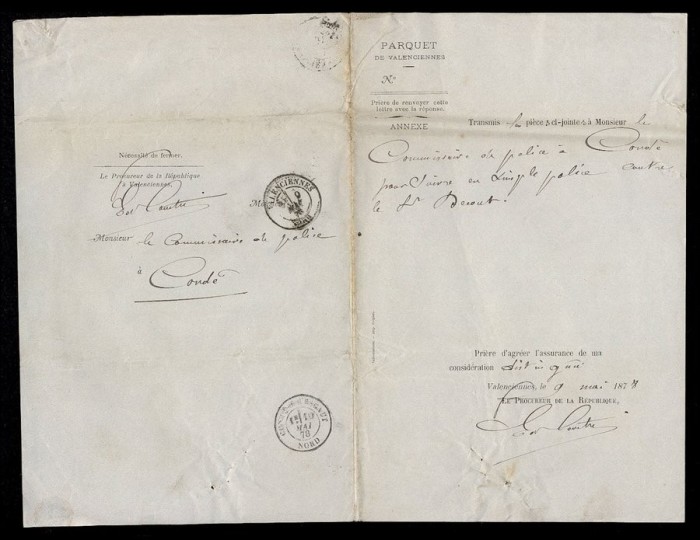 Nécessité de fermer.
Le Procureur de la République
à Valenciennes,
Monsieur le Commissaire de police
à
Condé
VALENCIENNES
9
MAI
NORD
10
MAI
78
NORD
PARQUET
DE VALENCIENNES
N°
Prière de renvoyer cette
lettre avec la réponse.
ANNEXE
Transmis la pièce ci-jointe à Monsieur le
Commissaire de police à Condé
pour suivre en simple police contre
le Sr
Prière d'agréer l'assurance de ma
considération distinguée
Valenciennes, le 9 mai 1878
LE PROCUREUR DE LA RÉPUBLIQUE,